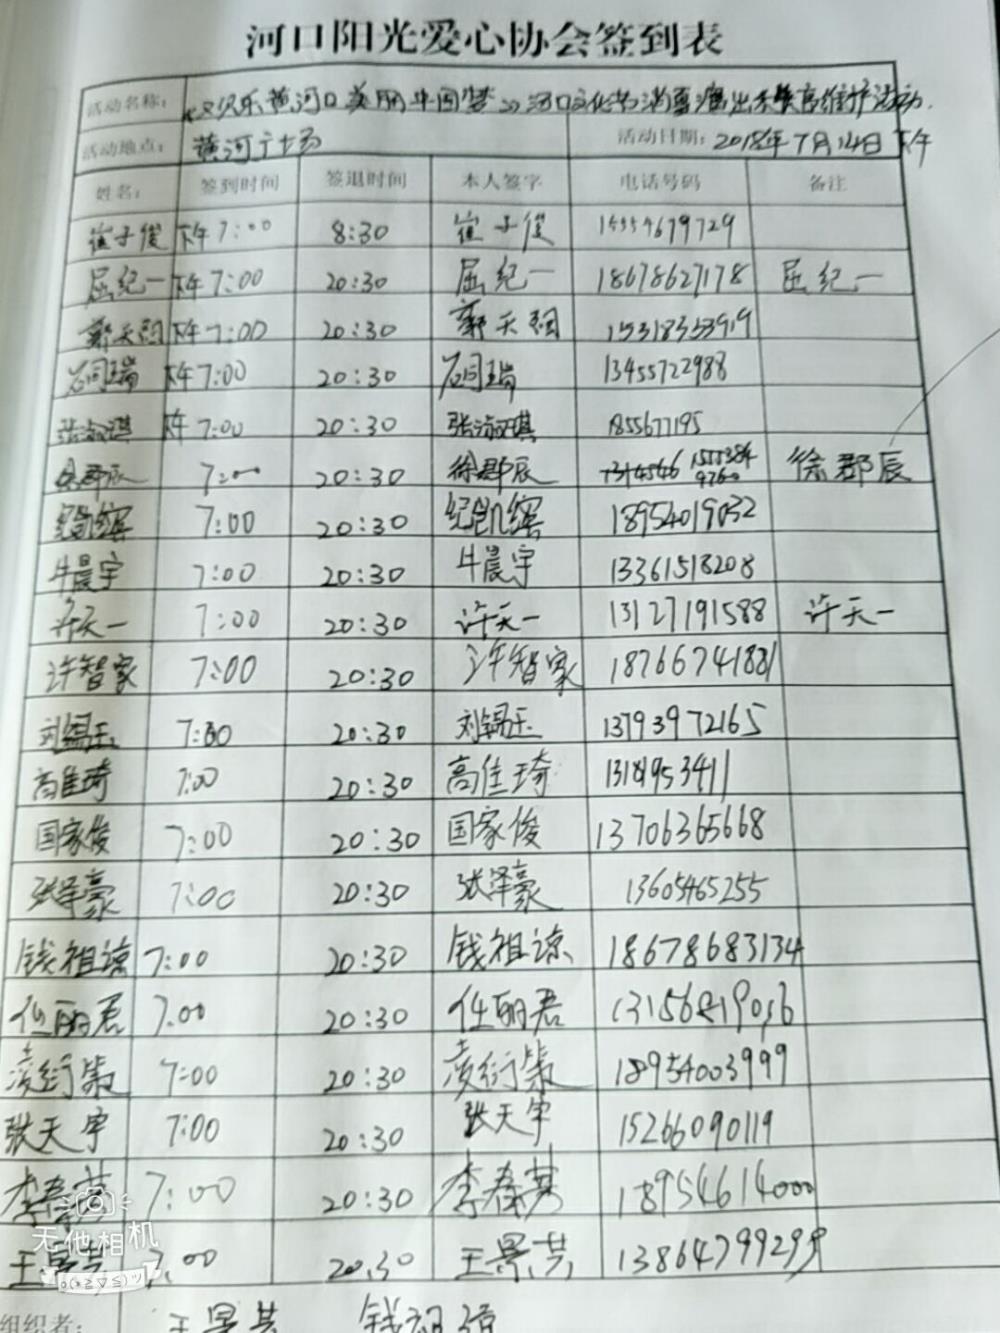 河口阳光爱心协会签到表
活动名称: 《欢乐黄河口 美丽中国梦》河口文化节消夏演出 维护活动.
活动地点: 黄河广场 活动日期: 2018年7月14日 下午
姓名: 签到时间 签退时间 本人签字 电话号码 备注
崔子俊 下午7:00 8:30 崔子俊 15554679729
屈纪一 下午7:00 20:30 屈纪一 18678627178 屈纪一
郭天翔 下午7:00 20:30 郭天翔 15318353919
石同瑞 下午7:00 20:30 石同瑞 13455722988
张淑琪 下午 7:00 20:30 张淑琪 1855677195
徐郡辰 7:00 20:30 徐郡辰 徐郡辰
纪凯缤 7:00 20:30 纪凯缤 18954019032
牛晨宇 7:00 20:30 牛晨宇 13361518208
许天一 7:00 20:30 许天一 13127191588 许天一
许智家 7:00 20:30 许智家 18766741881
刘锡玉 7:00 20:30 刘锡玉 13793972165
高佳琦 7:00 20:30 高佳琦 1318953411
国家俊 7:00 20:30 国家俊 13706365668
张泽豪 7:00 20:30 张泽豪 13605465255
钱祖谅 7:00 20:30 钱祖谅 18678683134
任丽君 7.00 20:30 任丽君
凌衍策 7:00 20:30 凌衍策 18954003999
张天宇 7:00 20:30 张天宇 15266090119
李春芳 7:00 20:30 李春芳 18954614000
王景芸 7.00 20.30 王景芸 13864799299
无他相机
组织者: 王景芸 钱祖谅